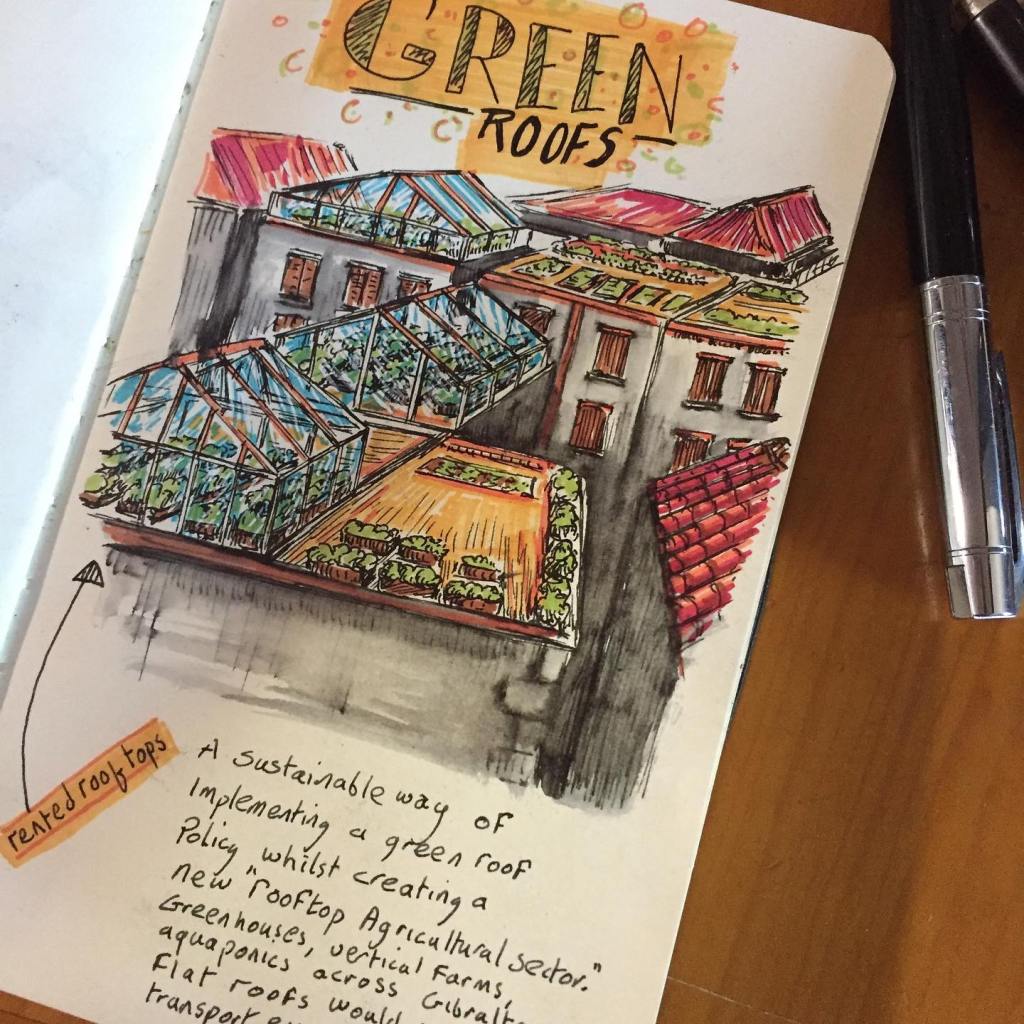 GREEN
ROOFS
rented roof tops
A sustainable way of
Implementing a green roof
Policy whilst creating a
new "rooftop Agricultural sector."
Greenhouses, vertical Farms,
aquaponics across
Flat roofs would
transport